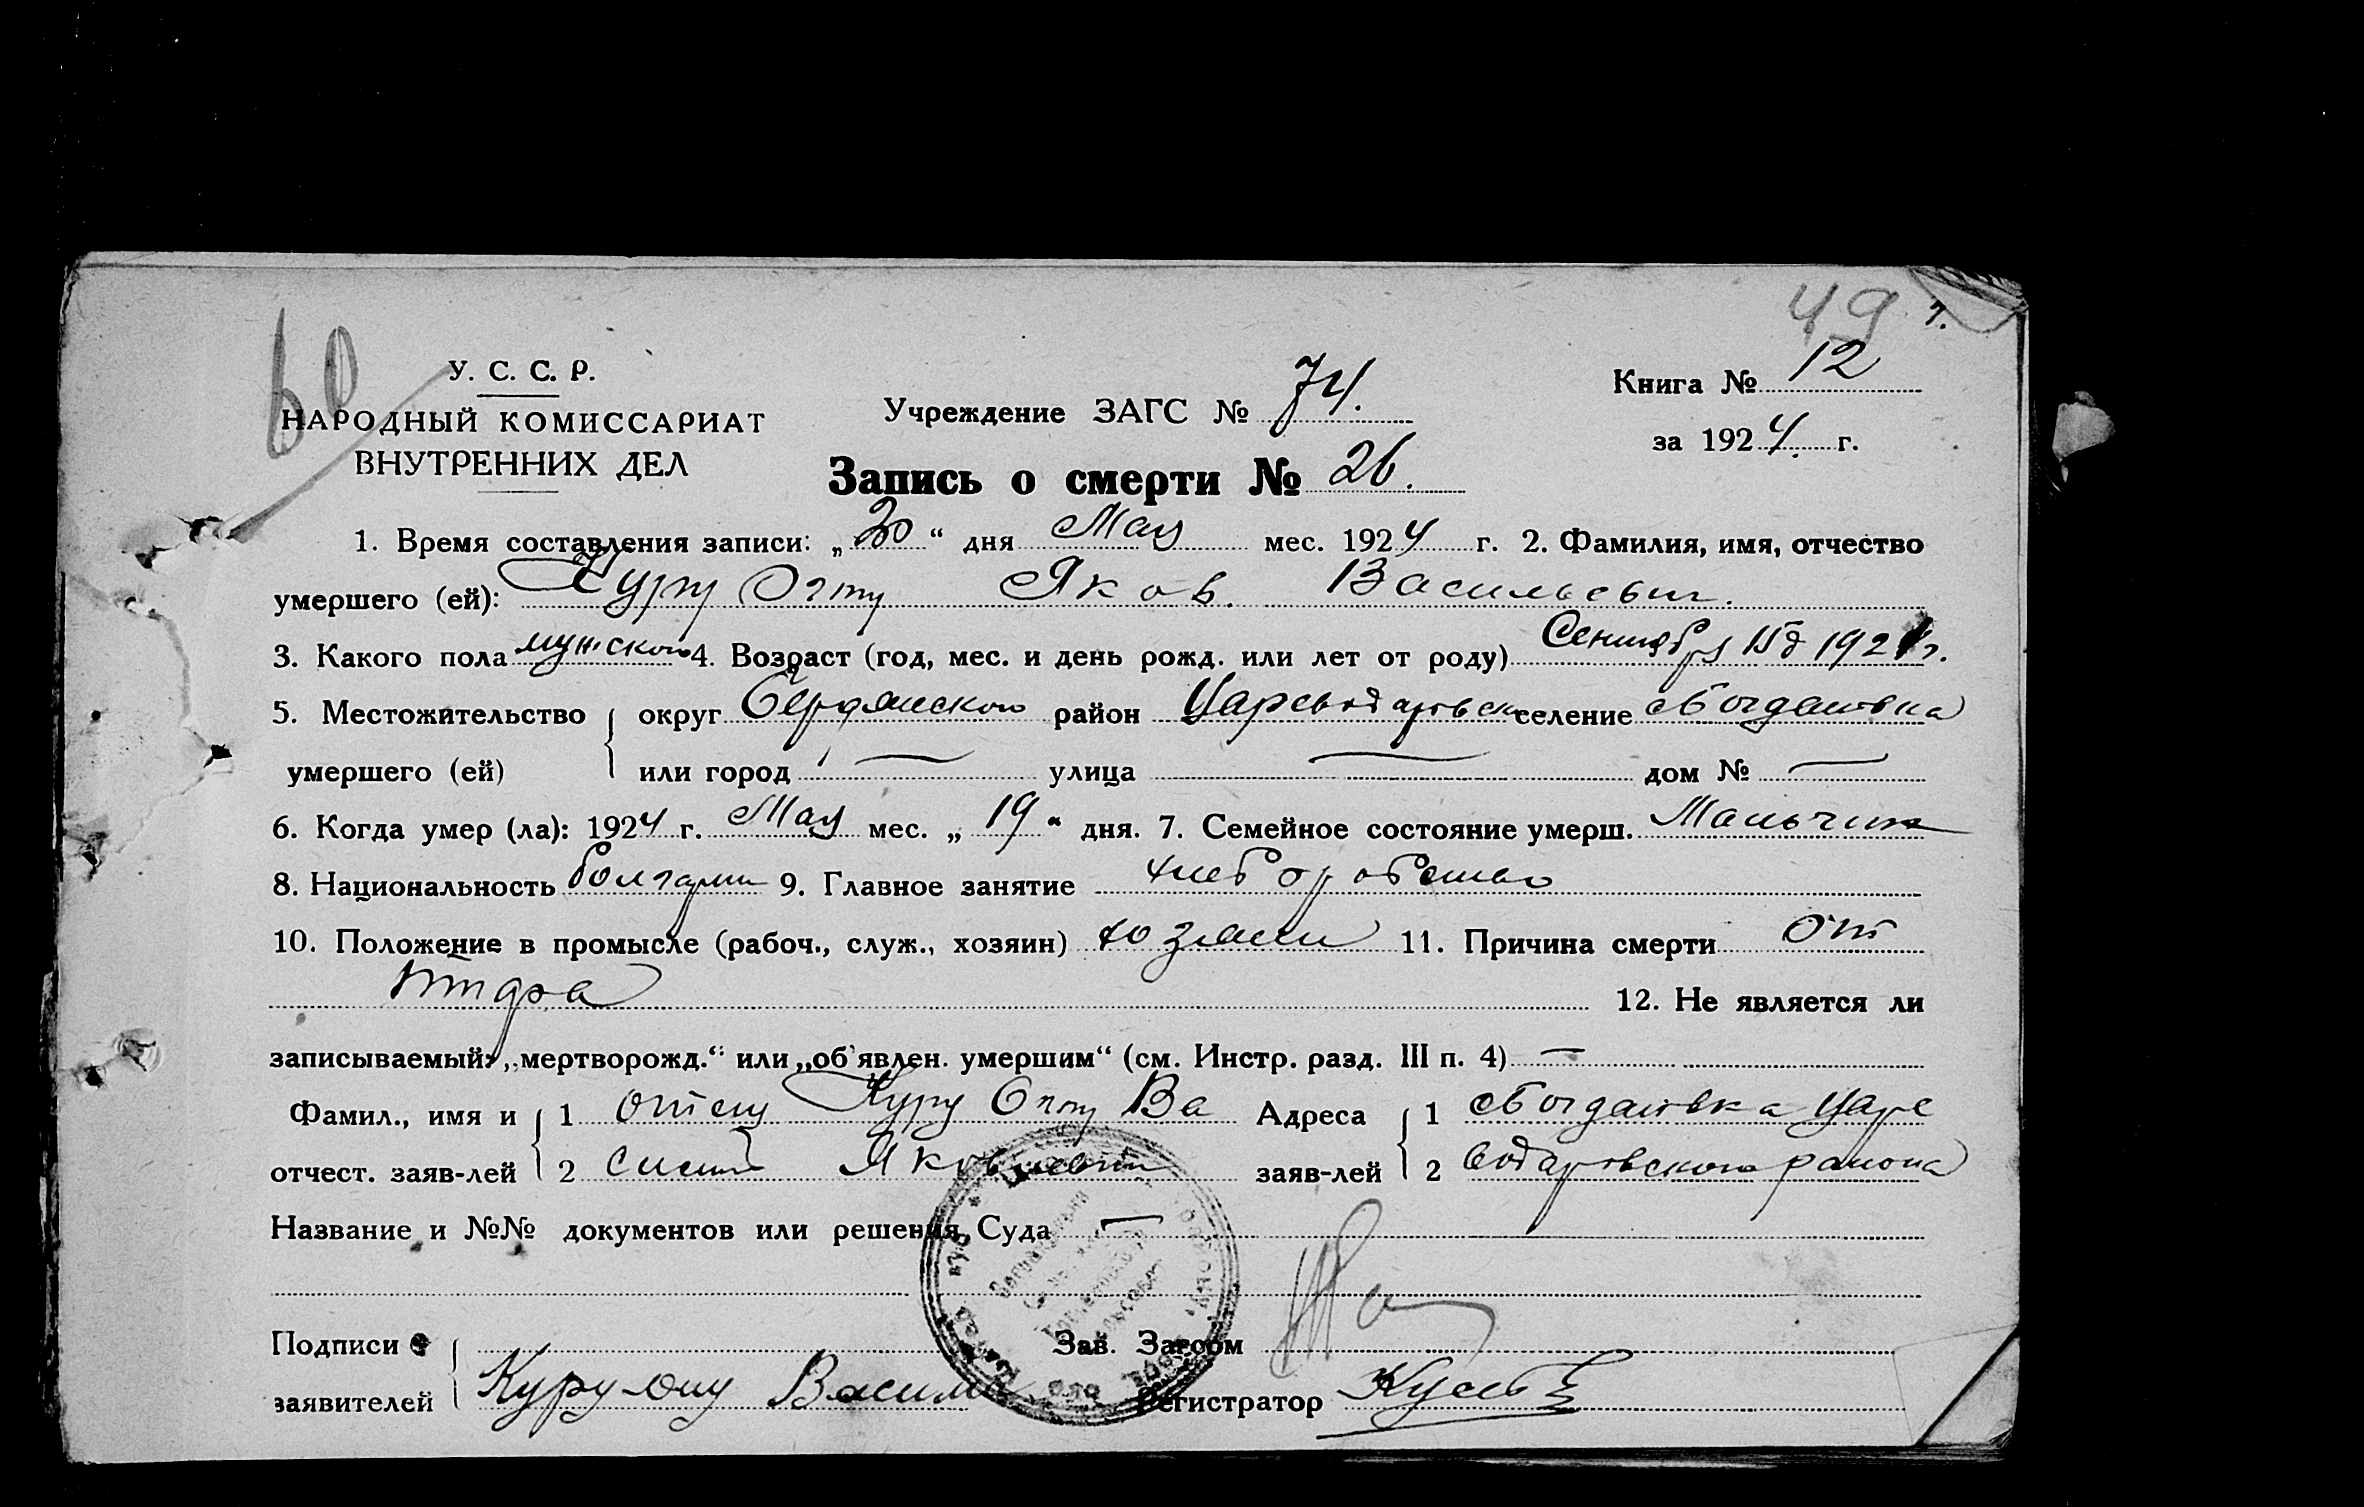 49
60
У. С. С. Р.
НАРОДНЫЙ КОМИССАРИАТ
ВНУТРЕННИХ ДЕЛ
Учреждение ЗАГС № 74.
Книга № 12
за 1924. г.
Запись о смерти № 26.
1. Время составления записи: „ 30 “ дня Мая мес. 1924 г. 2. Фамилия, имя, отчество
умершего (ей): Куру Оглу Яков. Васильевич.
3. Какого пола мужского 4. Возраст (год, мес. и день рожд. или лет от роду) Сентября 15д 1921г.
5. Местожительство округ Бердянского район Цареводаровск селение с Богдановка
умершего (ей) или город — улица — дом № —
6. Когда умер (ла): 1924 г. Мая мес. „ 19 “ дня. 7. Семейное состояние умерш. Мальчик
8. Национальность болгарин 9. Главное занятие хлеборобство
10. Положение в промысле (рабоч., служ., хозяин) хозяин 11. Причина смерти От
12. Не является ли
записываемый „мертворожд.“ или „об'явлен. умершим“ (см. Инстр. разд. III п. 4) —
Фамил., имя и 1 отец Куру Оглу Ва Адреса 1 с Богдановка Царе
отчест. заяв-лей 2 силий Яковлевич заяв-лей 2 водаровского района
Название и №№ документов или решения Суда —
Подписи Зав. Загсом
заявителей Куру-Оглу Васили Регистратор